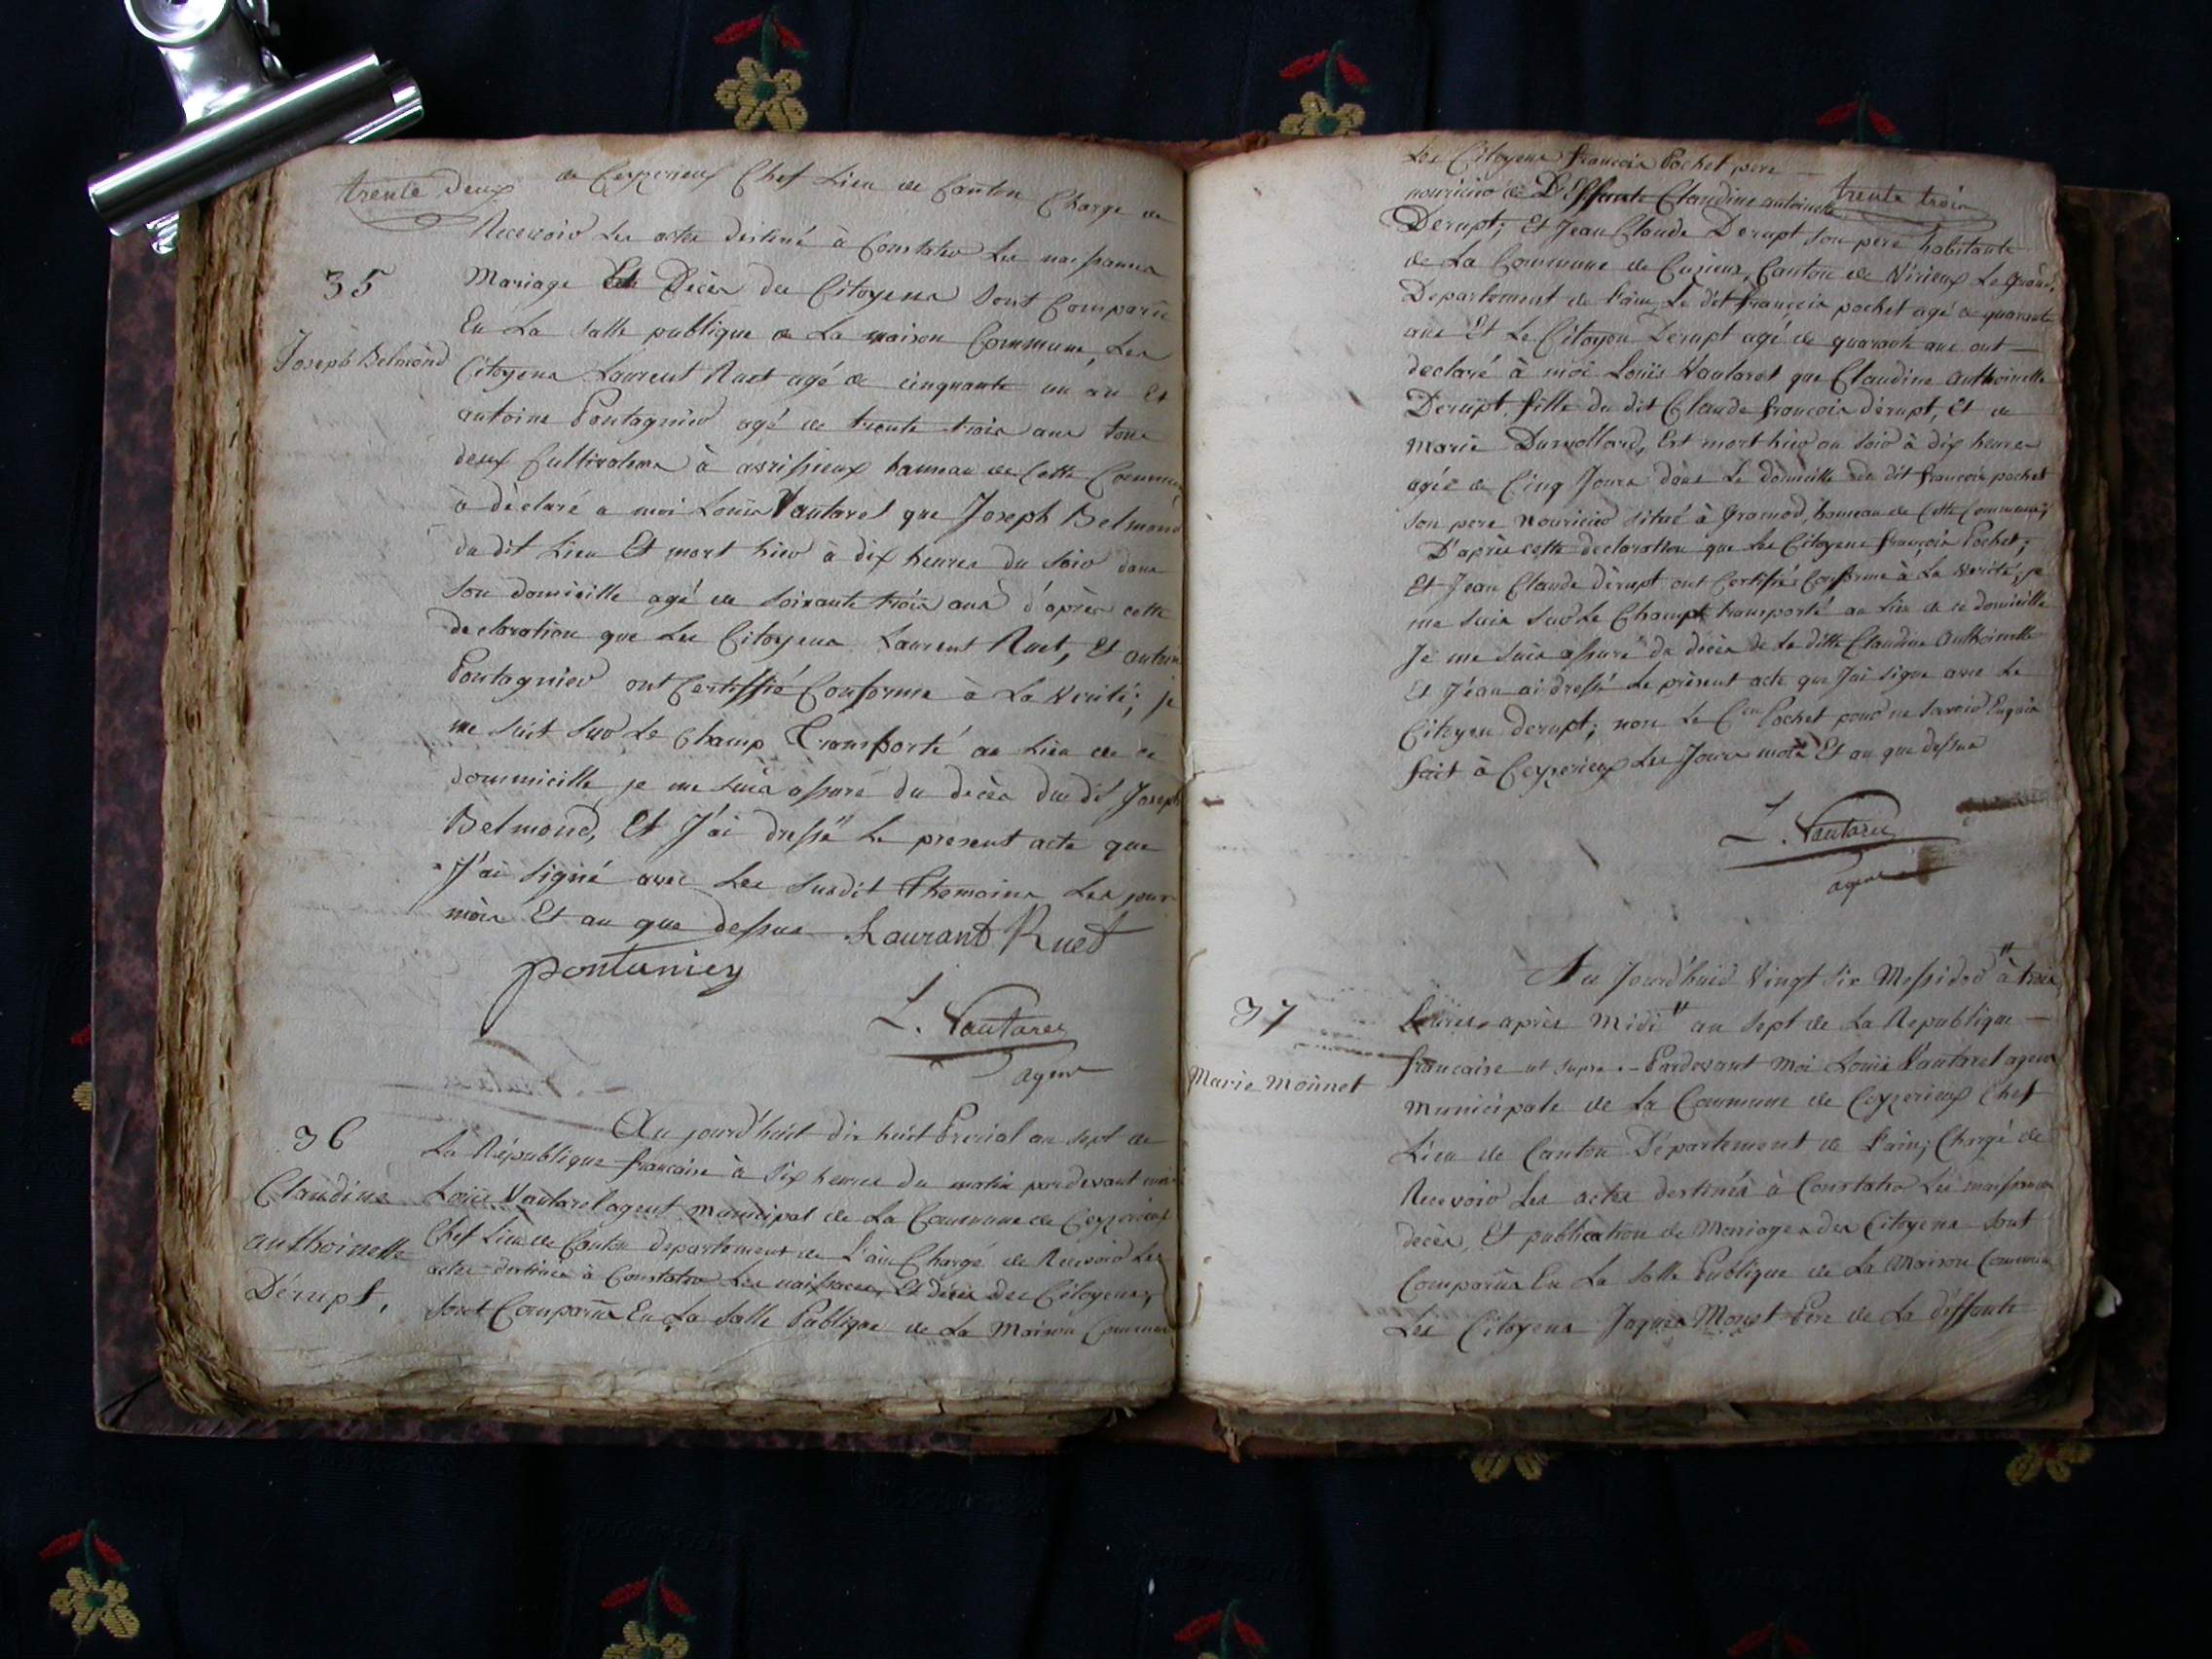 trente deux
de Ceyzerieux Chef Lieu de Canton Chargé de
Recevoir Les actes destiné à Constater Les naissances
35
Mariage Et Décès des Citoyens sont Comparu
En La salle publique de La maison Commune, Les
Joseph Belmond
Citoyens Laurent Ruet agé de cinquante un an Et
antoine Pontagnier agé de trente trois ans tous
deux Cultivateurs à avrissieux hameau de Cette Commune
à déclaré a moi Louis Vautaret que Joseph Belmond
du dit Lieu Et mort hier à dix heures du soir dans
son domicille agé de soixante trois ans d'après cette
declaration que Les Citoyens Laurent Ruet, Et antoine
Pontagnier ont Certiffié Conforme à La Verité; je
me suit sur Le Champ Transporté au Lieu de ce
dommicille, je me suis assuré du decès du dit Joseph
Belmond, Et J'ai dressé Le present acte que
J'ai signé avec Les susdit Themoins Les jour
mois Et an que dessus Laurant Ruet
pontuniey
L. Vautaret
agent
36
Au jourd'huit dix huit Prerial an sept de
La République francaise à six heures du matin pardevant moi
Claudine
Louis Vautaret agent municipal de La Commune de Ceyzerieux
authoinette
Chef Lieu de Canton departement de L'ain Chargé de Recevoir Les
actes destinés à Constater Les naissances, Et décès des Citoyens,
Dérupt,
sont Comparus En La salle Publique de La Maison Commune
Les Citoyens francois Pochet pere
trente trois
nouricier de D'effunte Claudine antoinette
Derupt; Et Jean Claude Derupt son pere habitants
de La Commune de Cuzieux, Canton de Virieux Le Grand,
Departement de L'ain, Le dit françois pochet agé de quarante
ans Et Le Citoyen Derupt agé de quarante ans ont
declaré à moi Louis Vautaret que Claudine Authoinette
Derupt, fille du dit Claude francois dérupt, Et de
Marie Duruollard, Est mort hier au soir à dix heures
agée de Cinq Jours dans Le domicille du dit francois pochet
son pere Nouricier situé à Gramod, hameau de Cette Commune;
D'après cette declaration que Les Citoyens françois Pochet;
Et Jean Claude dérupt ont Certifiés Conforme à La Verité; je
me suis sur Le Champt transporté au Lieu de ce domicille
Je me suis assuré du décès de La ditte Claudine Authoinette
Et J'en ai dressé Le present acte que J'ai signe avec Le
Citoyen derupt; non Le Cen Pochet pour ne savoir Enquis
fait à Ceyzerieux Les Jours mois Et an que dessus
L. Vautaret
agent
Au Jourd'huid Vingt six Messidor à trois
37
heures après Midi an sept de La Republique
francaise ut supra. Pardevant Moi Louis Vautaret agent
Marie Monnet
Municipale de La Commune de Ceyzerieux Chef
Lieu de Canton Departement de L'ain; Chargé de
Recevoir Les actes destinés à Constater Les naissances
decès, Et publication de Mariages des Citoyens sont
Comparus En La salle Publique de La Maison Commune
Les Citoyens Jaques Monet Pere de La deffunte